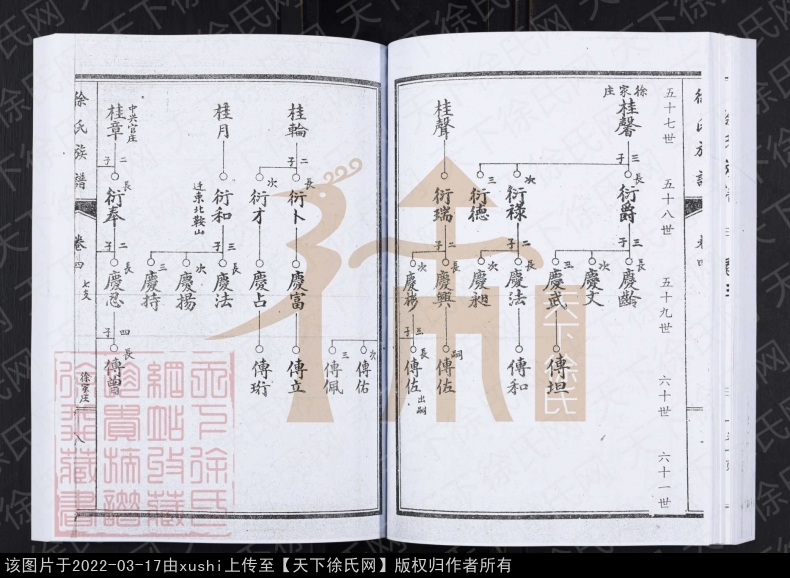 徐氏族譜
五十七世
五十八世
五十九世
六十世
六十一世
徐家庄
桂馨
三子
長
衍爵
次
衍祿
三
衍德
三子
長
慶齡
次
慶文
三
慶武
傳坦
二子
長
慶法
次
慶昶
傳和
桂聲
衍瑞
二子
長
慶興
次
慶彬
嗣
傳佐
三子
長
傳佐
出嗣
次
傳佑
三
傳佩
桂輪
二子
長
衍卜
次
衍才
慶富
慶占
傳立
傳珩
桂月
衍和
遼東北鞍山
三子
長
慶法
次
慶揚
三
慶持
桂章
中興官庄
二子
長
衍奉
二子
長
慶忍
四子
長
傳曾
徐氏族譜
卷四
七支
徐家庄
八
天下徐氏
天下徐氏网
该图片于2022-03-17由xushi上传至【天下徐氏网】版权归作者所有